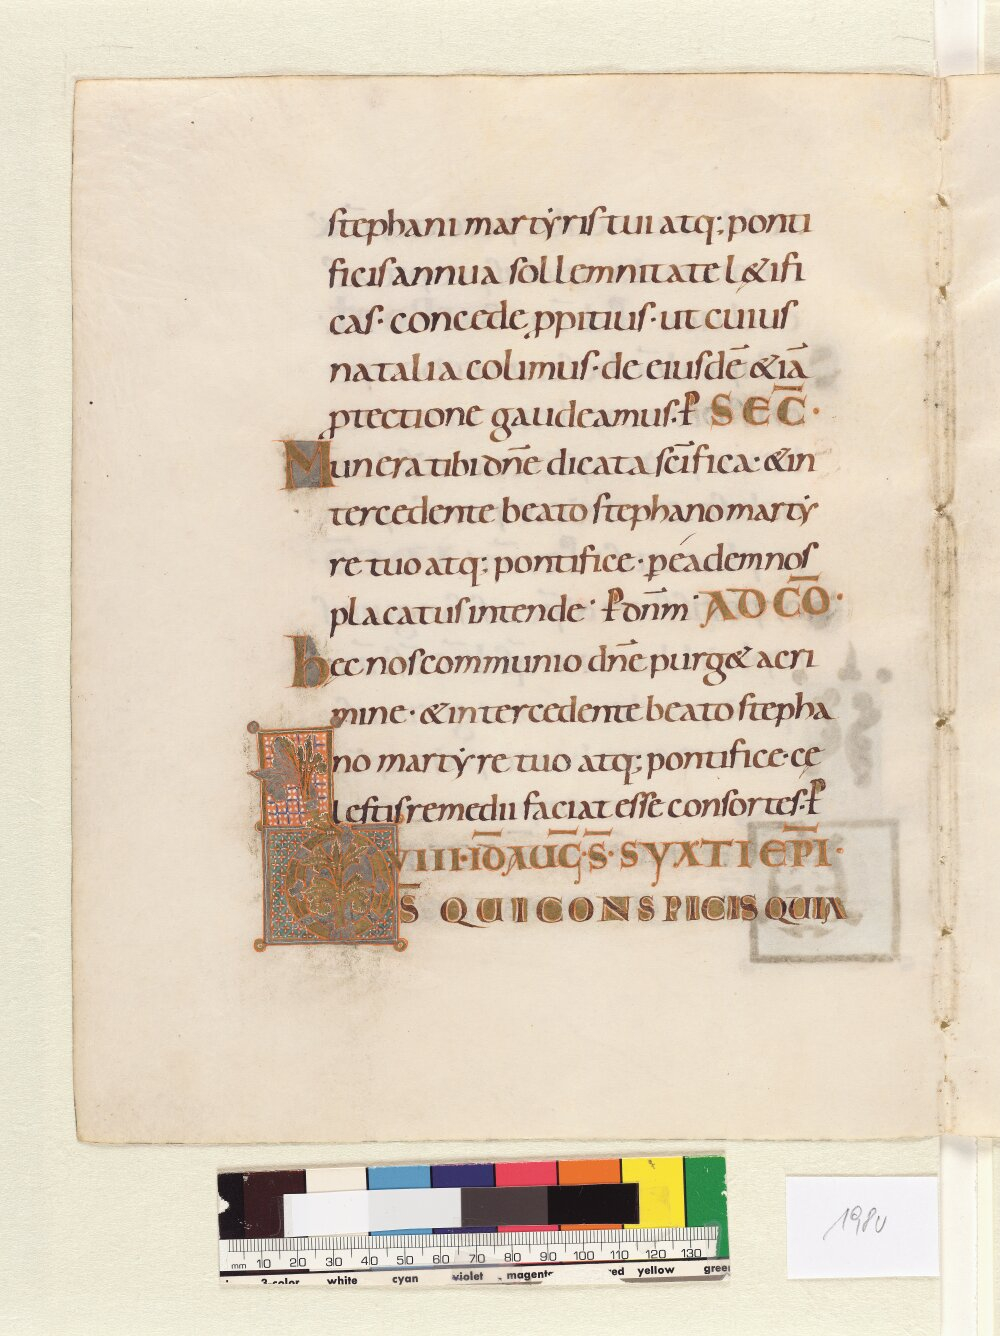 stephani martyris tui atq; ponti
ficis annua sollemnitate l&ifi
cas· concede ꝓpitius· ut cuius
natalia colimus· de eiusdē &iā
ꝓtectione gaudeamus. ꝑ SEC̅·
Munera tibi dn̄e dicata sc̄ifica· &in
tercedente beato stephano marty
re tuo atq; pontifice· ꝑ éadem nos
placatus intende· ꝑ dn̄m· AD C̅O̅·
hęc nos communio dn̄e purg& a cri
mine· &intercedente beato stepha
no martyre tuo atq; pontifice· cę
lestis remedii faciat esse consortes. ꝑ
VIII· ID̅ AUC̅· S̅· SYXTI EP̅I·
D̅S̅ QUI CONSPICIS QUIA
198v
mm 10 20 30 40 50 60 70 80 90 100 110 120 130
3-color white cyan violet magenta red yellow green